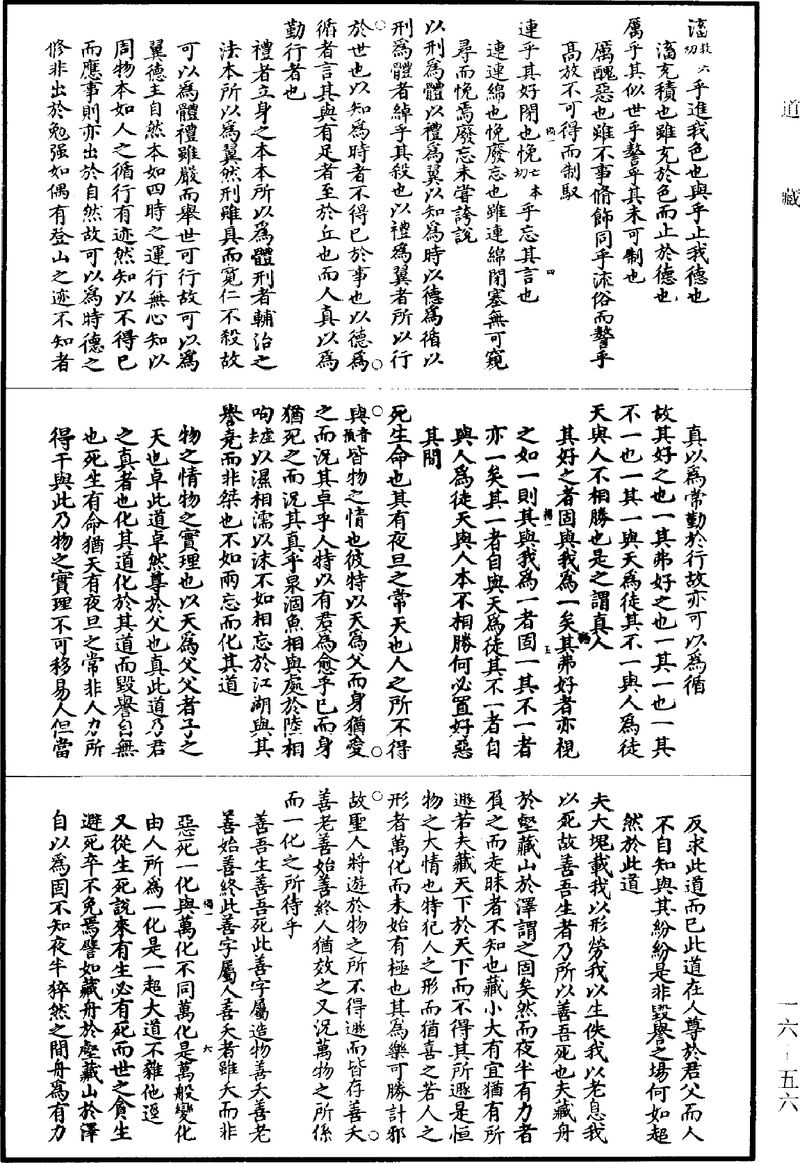 道藏
滀救六切乎進我色也與乎止我德也
滀充積也雖充於色而止於德也
厲乎其似世乎謷乎其未可制也
厲醜惡也雖不事脩飾同乎流俗而謷乎
高放不可得而制馭
連乎其好閉也悗亡本切乎忘其言也
連連綿也悗廢忘也雖連綿閉塞無可窺
尋而悗焉廢忘未嘗誇說
以刑為體以禮為翼以知為時以德為循以
刑為體者綽乎其殺也以禮為翼者所以行
於世也以知為時者不得已於事也以德為
循者言其與有足者至於丘也而人真以為
勤行者也
禮者立身之本本所以為體刑者輔治之
法本所以為翼然刑雖具而寬仁不殺故
可以為體禮雖嚴而舉世可行故可以為
翼德主自然本如四時之運行無心知以
周物本如人之循行有迹然知以不得已
而應事則亦出於自然故可以為時德之
脩非出於勉强如偶有登山之迹不知者
真以為常勤於行故亦可以為循
故其好之也一其弗好之也一其一也一其
不一也一其一與天為徒其不一與人為徒
天與人不相勝也是之謂真人
其好之者固與我為一矣其弗好者亦視
之如一則其與我為一者固一其不一者
亦一矣其一者自與天為徒其不一者自
與人為徒天與人本不相勝何必置好惡
其間
死生命也其有夜旦之常天也人之所不得
與音預皆物之情也彼特以天為父而身猶愛
之而況其卓乎人特以有君為愈乎己而身
猶死之而況其真乎泉涸魚相與處於陸相
呴去虛以濕相濡以沫不如相忘於江湖與其
譽堯而非桀也不如兩忘而化其道
物之情物之實理也以天為父父者子之
天也卓此道卓然尊於父也真此道乃君
之真者也化其道化於其道而毀譽自無
也死生有命猶天有夜旦之常非人力所
得干與此乃物之實理不可移易人但當
反求此道而已此道在人尊於君父而人
不自知與其紛紛是非毀譽之場何如超
然於此道
夫大塊載我以形勞我以生佚我以老息我
以死故善吾生者乃所以善吾死也夫藏舟
於壑藏山於澤謂之固矣然而夜半有力者
負之而走昧者不知也藏小大有宜猶有所
遯若夫藏天下於天下而不得其所遯是恒
物之大情也特犯人之形而猶喜之若人之
形者萬化而未始有極也其為樂可勝計邪
故聖人將遊於物之所不得遯而皆存善夭
善老善始善終人猶效之又況萬物之所係
而一化之所待乎
善吾生善吾死此善字屬造物善夭善老
善始善終此善字屬人喜夭者雖夭而非
惡死一化與萬化不同萬化是萬般變化
由人所為一化是一超大道不雜他逕
又從生死說來有生必有死而世之貪生
避死卒不免焉譬如藏舟於壑藏山於澤
自以為固不知夜半猝然之間舟為有力
一六－五六